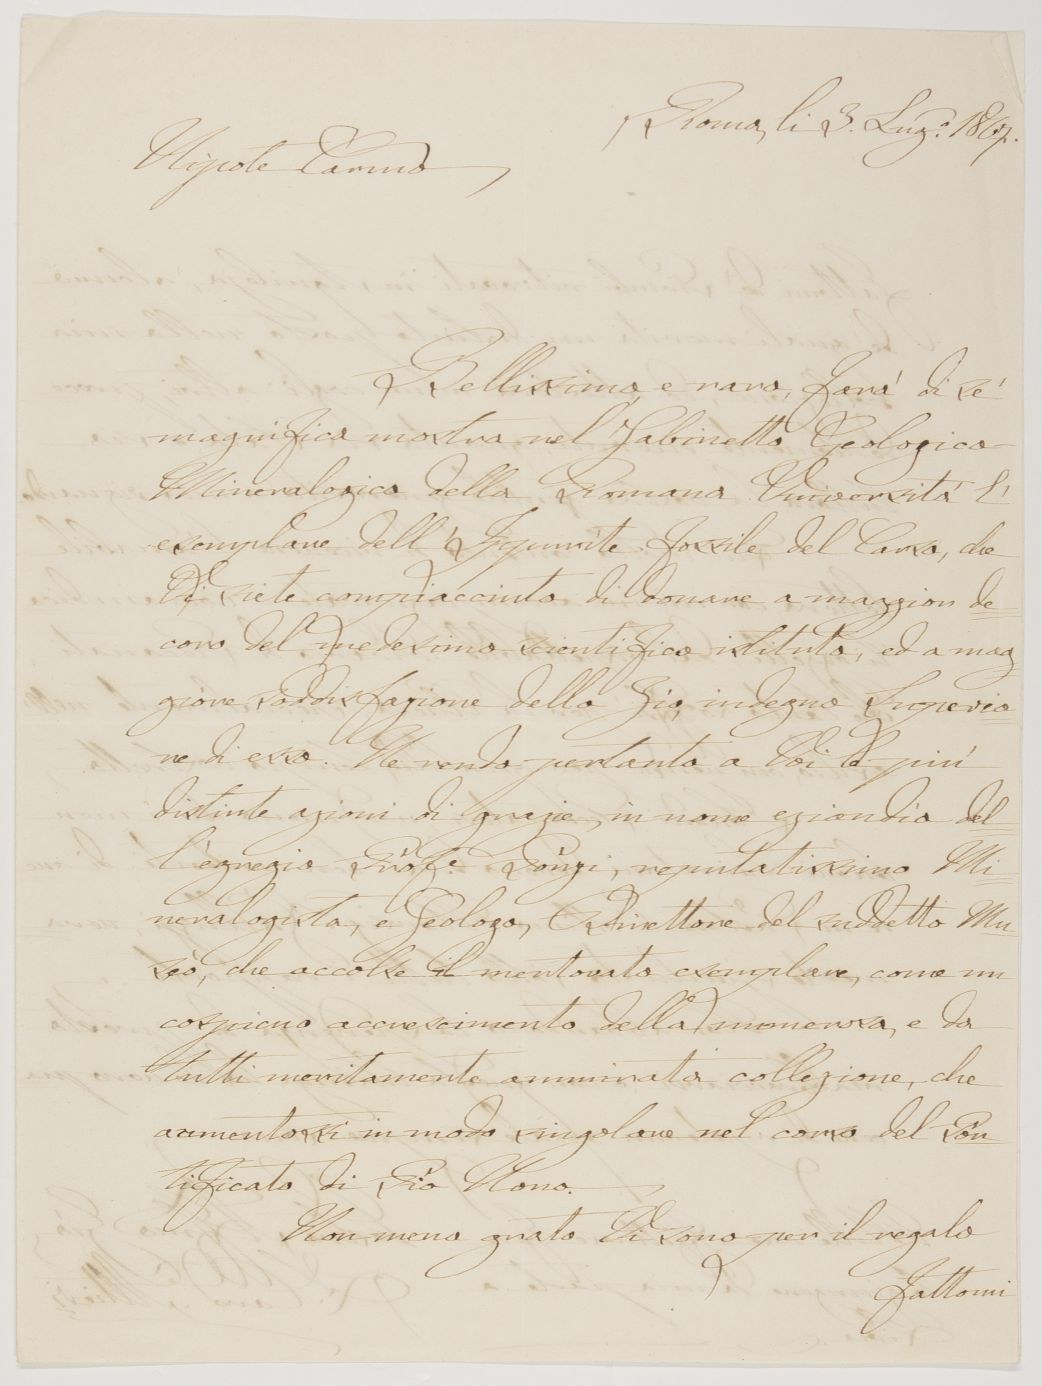 Roma, li 3. Lug.º 1867.
Nipote Carmo
Bellissimo, e raro, farà di sé
magnifica mostra nel Gabinetto Geologico
Mineralogico della Romana Università l'
esemplare dell'Ippurite fossile del Carso, che
Vi siete compiacciuto di donare a maggior de=
coro del medesimo scientifico istituto, ed a mag
giore soddisfazione dello Zio, indegno Superio=
re di esso. Ne rendo pertanto a Voi le più
distinte azioni di grazie, in nome eziandio del=
l'egregio Prof.e Ponzi, reputatissimo Mi=
neralogista, e Geologo, Direttore del suddetto Mu=
seo, che accolse il mentovato esemplare, come un
cospicuo accrescimento della numerosa, e da
tutti meritamente ammirata collezione, che
aumentossi in modo singolare nel corso del Pon
tificato di Pio Nono.
Non meno grato Vi sono per il regalo
fattomi